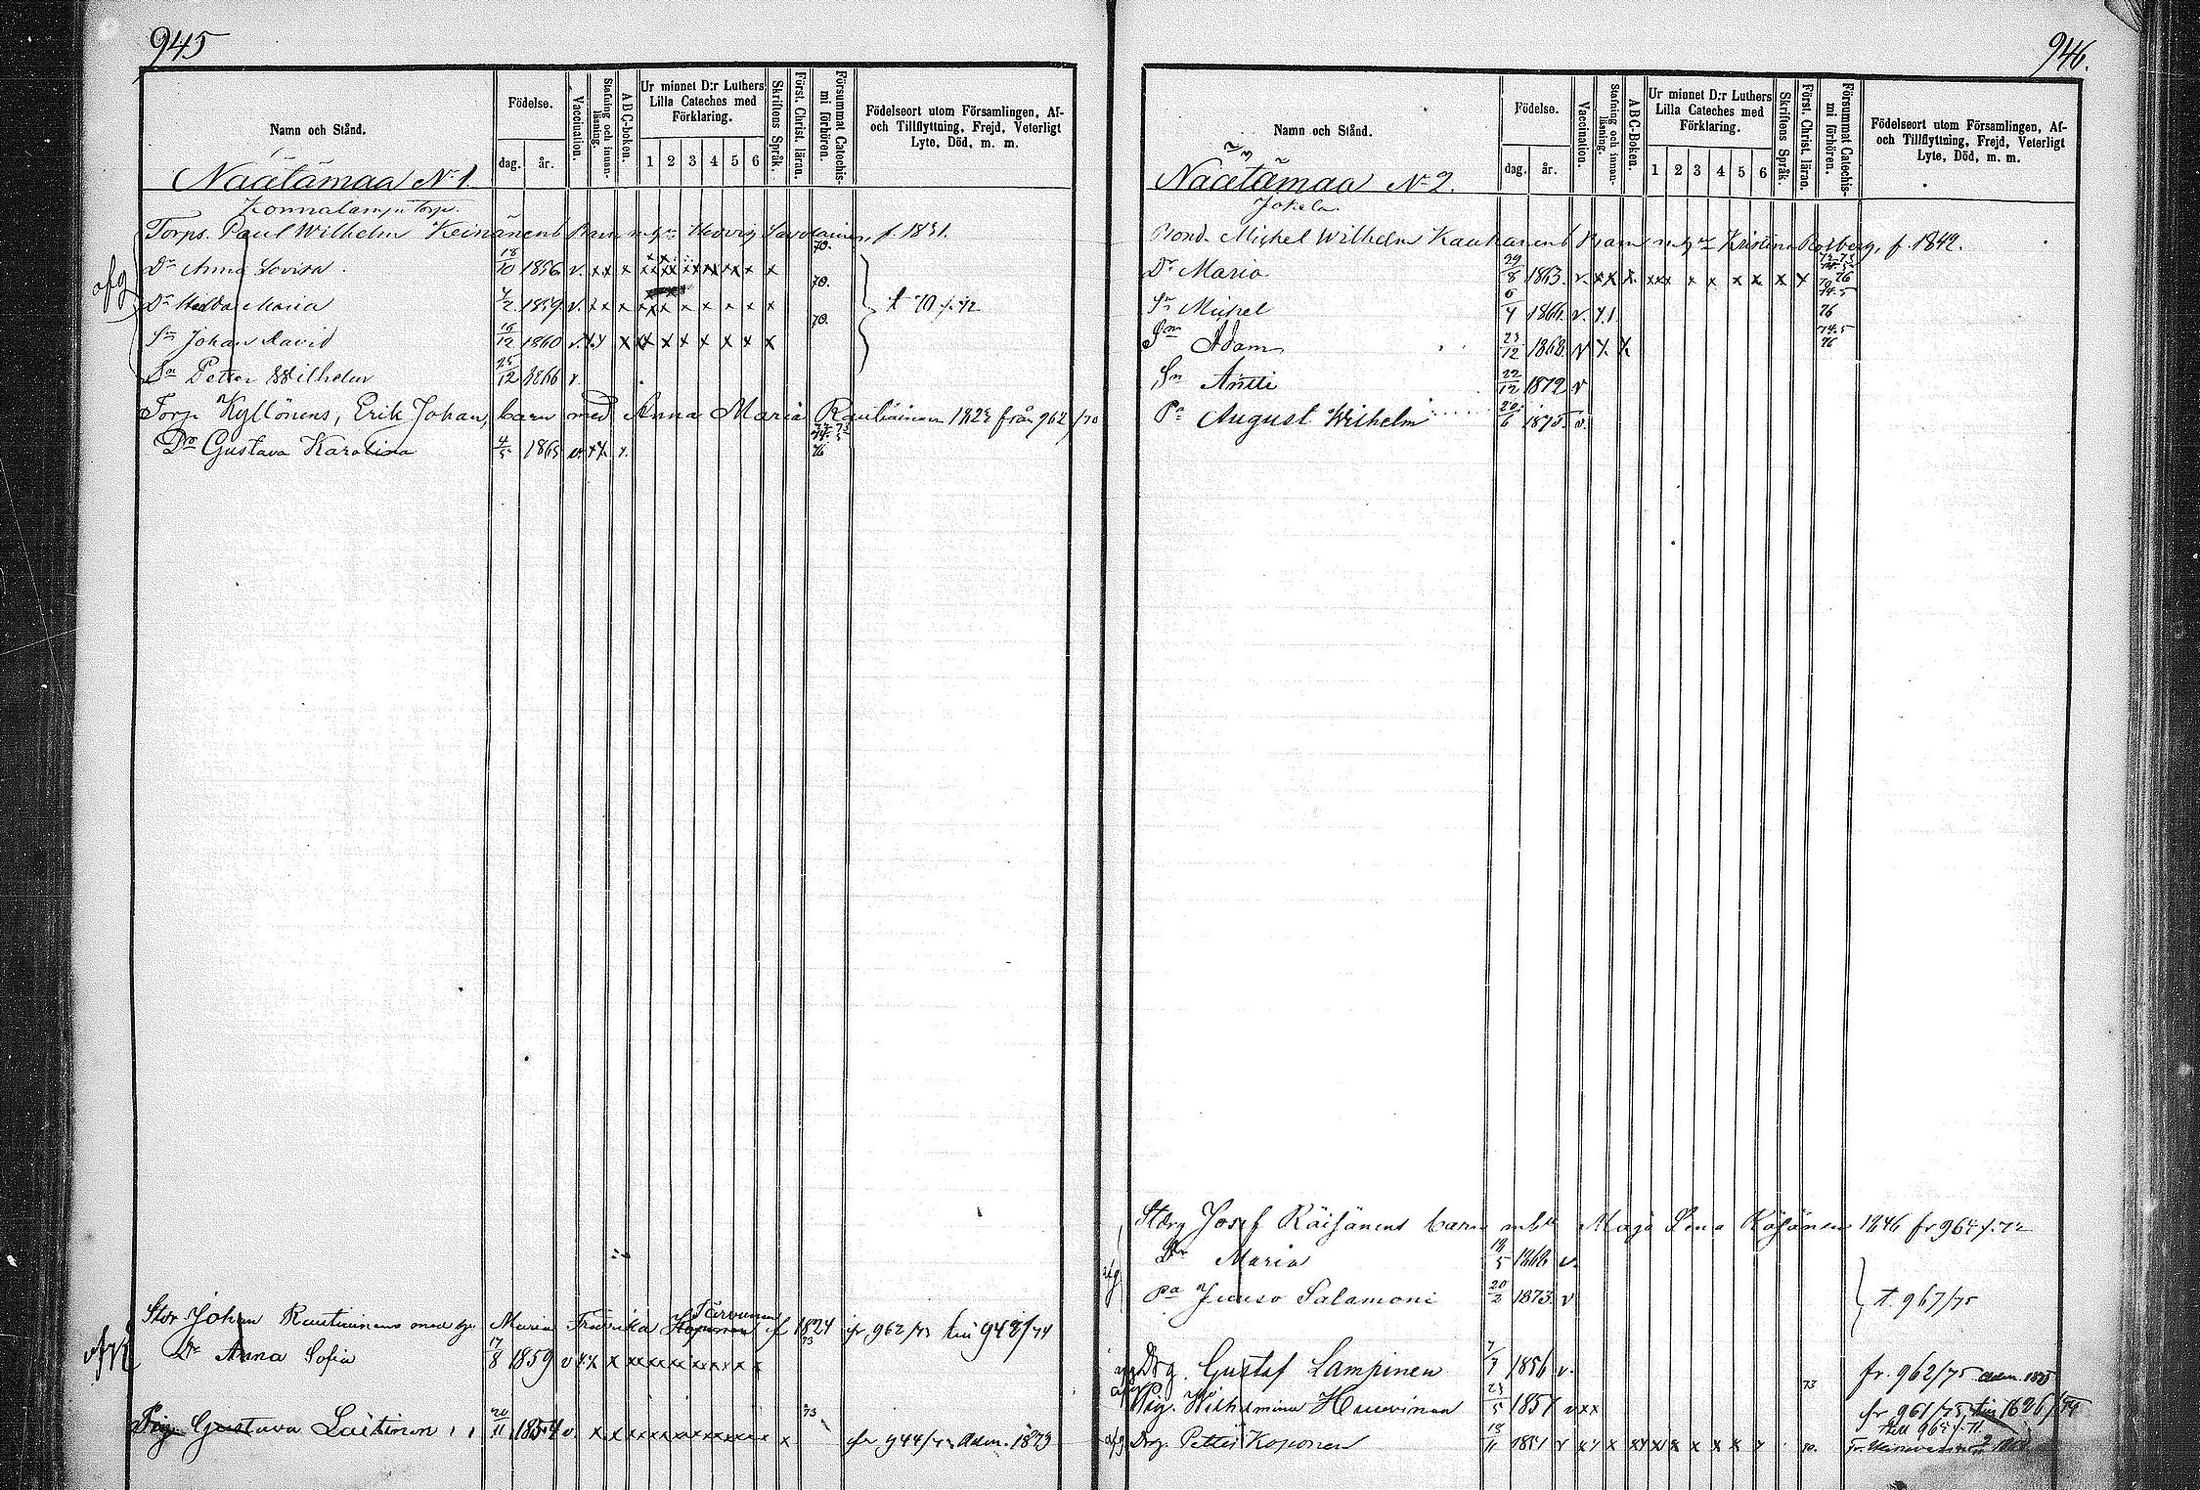 945
Namn och Stånd.
Födelse.
dag. år.
Vaccination.
Stafning och innan-läsning.
A B C-boken.
Ur minnet D:r Luthers Lilla Cateches med Förklaring.
1 2 3 4 5 6
Skriftens Språk.
Först. Christ. läran.
Försummat Catechis-mi förhören.
Födelseort utom Församlingen, Af-
och Tillflyttning, Frejd, Veterligt
Lyte, Död, m. m.
Näätämaa No 1.
Konnalampi torp.
Torps. Paul Wilhelm Keinänens Barn m. h. Hedvig Savolainen, f 1831.
afg
Dr Anna Lovisa 18/10 1856 v. 70.
Dr Hedda Maria 4/2 1859 v. 70. t 70 f. 72
Sn Johan David 16/12 1860 v. 70.
Sn Petter Wilhelm 25/12 1866 v.
Torp. Kyllönens, Erik Johan, barn med Anna Maria Rautiainen 1823 från 962/70
Dr Gustava Karolina 4/5 1865 v. 76
Stor Johan Rautiainens med h. Maria Fredrika Tarvainen f 1824 fr 962/73 till 948/74
Dr Anna Sofia 17/8 1859 v 73
Pig. Gustava Laitinen 20/11 1854 v. 73 fr 944/73 Adm. 1873
946.
Namn och Stånd.
Födelse.
dag. år.
Vaccination.
Stafning och innan-läsning.
ABC-Boken.
Ur minnet D:r Luthers Lilla Cateches med Förklaring.
1 2 3 4 5 6
Skriftens Språk.
Först. Christ. läran.
Försummat Catechis-mi förhören.
Födelseort utom Församlingen, Af-
och Tillflyttning, Frejd, Veterligt
Lyte, Död, m. m.
Näätämaa No 2.
Jokela
Bond. Mickel Wilhelm Kauhanens Barn m. h. Kristina Rosberg, f. 1842.
Dr Maria 29/8 1863. v. 76
Sn Mickel 6/4 1866. v. 76
Son Adam 23/12 1868. v 76
Sn Antti 22/12 1872 v
Pa August Wilhelm 20/6 1875. v.
Storg Josef Räisänens barn m h Maja Lena Räsänen 1846 fr 964 f. 72
afg
Dr Maria 18/5 1868 v.
Pa Juuso Salamoni 20/2 1873. v t. 967/75
Drg. Gustaf Lampinen 7/7 1856 v. 73 fr. 962/75
Pig. Wilhelmina Huuvinen 23/5 1857 v x x fr 961/75
afg Drg. Petter Koponen 18/11 1851 v 70. till 964 f. 71.